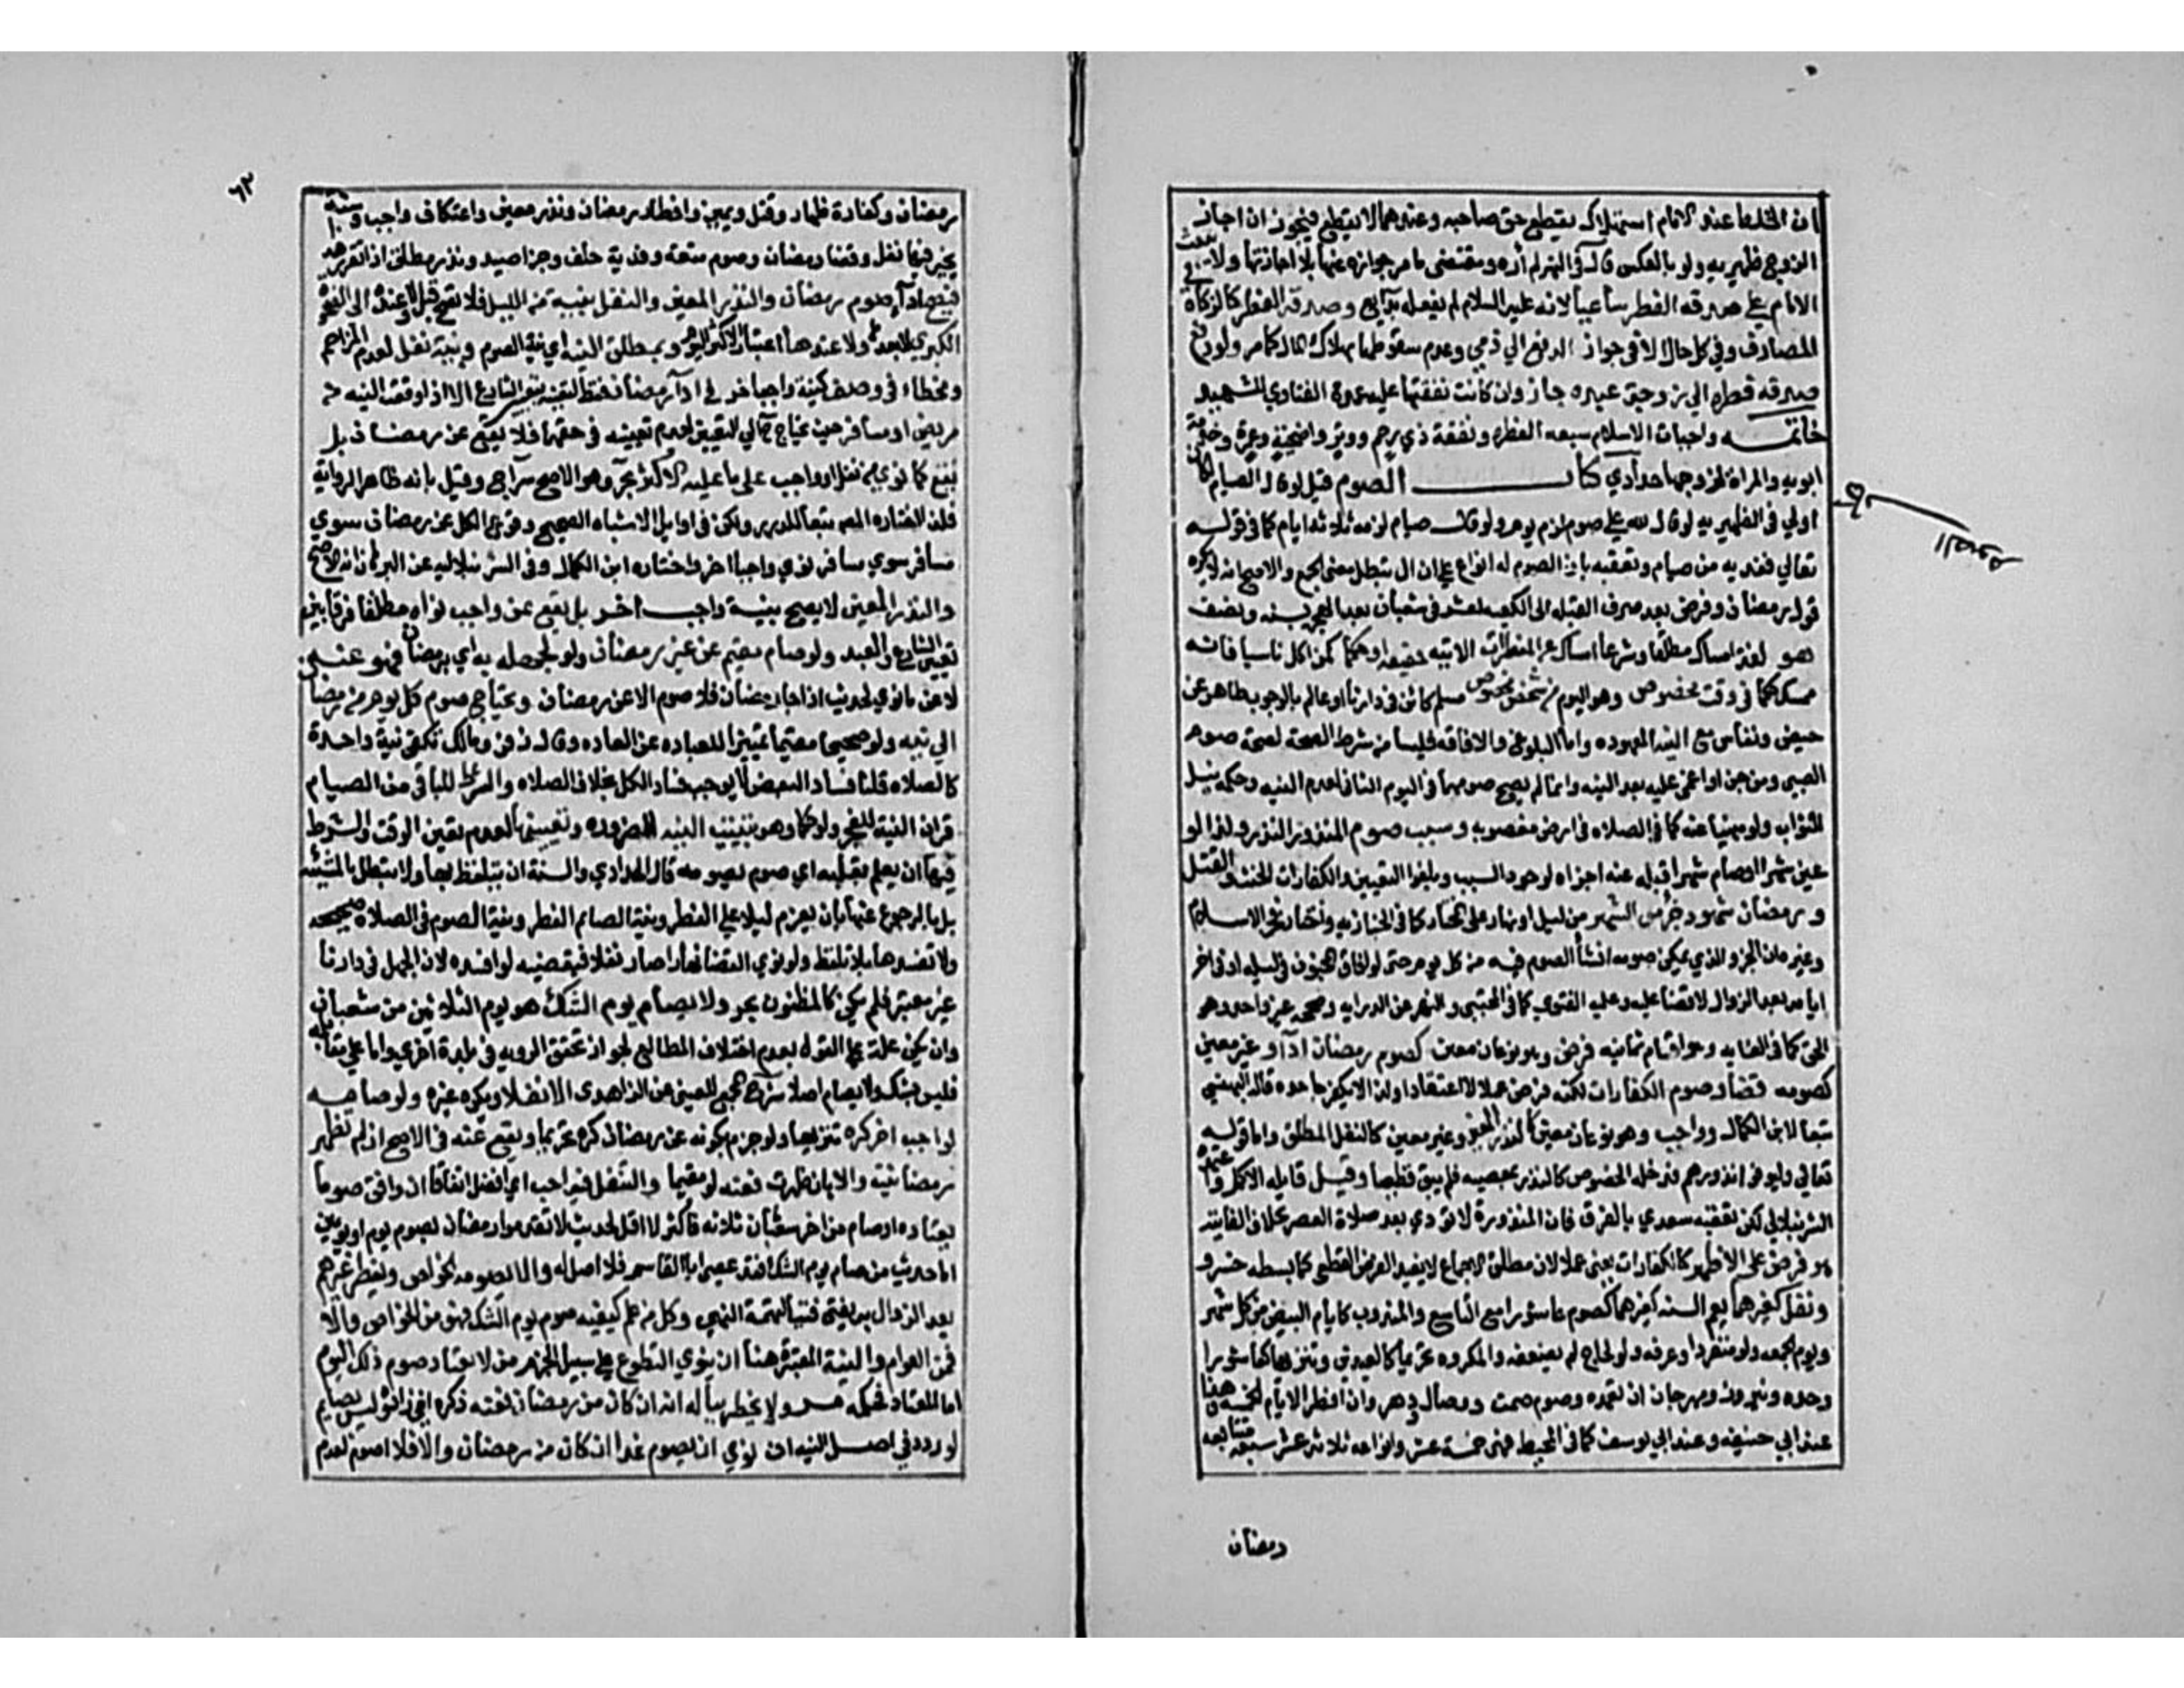 ان الخلط عند الامام استهلاك يقطع حق صاحبه وعندهما لا يقطع فيجوز ان اجاز
الزوج ظهيريه ولو بالعكس قال في النهر لم أره ومقتضى ما مر جوازه عنها بلا اجازتها ولا يبعث
الامام على صدقه الفطر ساعيا لانه عليه السلام لم يفعله بدايع وصدقه الفطر كالزكاة في
المصارف وفي كل حال الا في جواز الدفع الي ذمي وعدم سقوطها بهلاك المال كما مر ولو دفع
صدقه فطره الي زوجة عبده جاز وان كانت نفقتها عليه عمدة الفتاوي للشهيد
خاتمه واجبات الاسلام سبعه الفطره ونفقة ذي رحم ووتر واضحية وعمرة وخدمة
ابويه والمراة لزوجها حدادي كتاب الصوم قيل لو قال الصيام لكان
اولي في الظهيريه لو قال لله علي صوم لزمه يوم ولو قال صيام لزمه ثلاثه ايام كما في قوله
تعالي ففديه من صيام وتعقبه بان الصوم له انواع على ان ال تبطل معنى الجمع والاصح انه لا يكره
قول رمضان وفرض بعد صرف القبله الى الكعبه لعشر في شعبان بعد الهجره بسنه ونصف
هو لغة امساك مطلقا وشرعا امساك عن المفطرات الاتيه حقيقه او حكما كمن اكل ناسيا فانه
ممسك حكما في وقت مخصوص وهو اليوم من شخص مخصوص مسلم كائن في دارنا او عالم بالوجوب طاهر عن
حيض ونفاس مع النيه المعهوده واما البلوغ والافاقه فليسا من شرط الصحة لصحة صوم
الصبي ومن جن او اغمى عليه بعد النيه وانما لم يصح صومهما في اليوم الثاني لعدم النيه وحكمه نيل
الثواب ولو منهيا عنه كما في الصلاه في ارض مغصوبه وسبب صوم المنذور النذر ولذا لو
عين شهرا وصام شهرا قبله عنه اجزاه لوجود السبب ويلغوا التعيين والكفارات الحنث والقتل
ورمضان شهود جزء من الشهر من ليل او نهار على المختار كما في الخبازيه واختار فخر الاسلام
وغيره انه الجزء الذي يمكن صومه انشأ الصوم فيه من كل يوم حتى لو افاق المجنون في ليله او في اخر
ايامه بعد الزوال لا قضا عليه وعليه الفتوى كما في المجتبي والنهر عن الدرايه وصححه غير واحد وهو
الحق كما في الغايه وهو اقسام ثمانيه فرض وهو نوعان معين كصوم رمضان ادآ او غير معين
كصومه قضا وصوم الكفارات لكنه فرض عملا لا اعتقادا ولذا لا يكفر جاحده قاله البهنسي
تبعا لابن الكمال وواجب وهو نوعان معين كالنذر المعين وغير معين كالنفل المطلق واما قوله
تعالى وليوفوا نذورهم فدخله الخصوص كالنذر بمعصيه فلم يبق قطعيا وقيل قايله الاكمل وغيره
الشرنبلالي لكن تعقبه سعدي بالفرق فان المنذورة لا تؤدي بعد صلاة العصر بخلاف الفايته
هو فرض على الاظهر كالكفارات يعني عملا لان مطلق الاجماع لا يفيد الفرض القطعي كما بسطه خسرو
ونفل كغيرهما يعم السنه كغيرهما كصوم عاشورا مع التاسع والمندوب كايام البيض من كل شهر
ويوم الجمعه ولو منفردا وعرفه ولو لحاج لم يضعفه والمكروه تحريما كالعيدين وتنزيها كعاشورا
وحده ونيروز ومهرجان ان تعمده وصوم صمت ووصال ودهر وان افطر الايام الخمسه هذا
عند ابي حنيفه وعند ابي يوسف كما في المحيط فهي خمسة عشر وانواعه ثلاثه عشر سبعه متتابعه
رمضان
٦٣
رمضان وكفارة ظهار وقتل ويمين وافطار رمضان ونذر معين واعتكاف واجب وسته
يخير فيها نفل وقضا رمضان وصوم متعة وفدية حلف وجزا صيد ونذر مطلق اذا تقرر هذا
فيصح ادآ صوم رمضان والنذر المعين والنفل بنية من الليل فلا تصح قبل الغروب ولا عنده الى الضحوة
الكبرى لا بعدها ولا عندها اعتبارا لاكثر اليوم وبمطلق النيه اي نية الصوم وبنية نفل لعدم المزاحم
وبخطاء في وصف كنية واجب اخر في ادآ رمضان فقط لتعينه بتعين الشارع الا اذا وقعت النيه من
مريض او مسافر حيث يحتاج الي التعيين لعدم تعينه في حقهما فلا يقع عن رمضان بل
يقع عما نوي من نفل او واجب على ما عليه الاكثر بحر وهو الاصح سراج وقيل بانه ظاهر الرواية
فلذا اختاره المصنف تبعا للدرر ولكن في اوايل الاشباه الصحيح وقوع الكل عن رمضان سوي
مسافر نوي واجبا اخر واختاره ابن الكمال وفي الشرنبلاليه عن البرهان انه الاصح
والنذر المعين لا يصح بنية واجب اخر بل يقع عن واجب نواه مطلقا فرقا بين
تعيين الشارع والعبد ولو صام مقيم عن غير رمضان ولو لجهله به اي برمضان فهو عنه
لا عن ما نوي لحديث اذا جاء رمضان فلا صوم الا عن رمضان ويحتاج صوم كل يوم من رمضان
الي نيه ولو صحيحا مقيما تمييزا للعباده عن العاده وقال زفر ومالك تكفي نية واحدة
كالصلاه قلنا فساد البعض لا يوجب فساد الكل بخلاف الصلاه والشرط للباقي من الصيام
قران النية للفجر ولو حكما وهو تبييت النيه للضروره وتعيينها لعدم تعين الوقت والشرط
فيها ان يعلم بقلبه اي صوم يصومه قال الحدادي والسنة ان يتلفظ بها ولا تبطل بالمشيئة
بل بالرجوع عنها بان يعزم ليلا على الفطر ونية الصايم الفطر ونية الصوم في الصلاة صحيحه
ولا تفسدها بلا تلفظ ولو نوي القضا نهارا صار نفلا فيقضيه لو افسده لان الجهل في دارنا
غير معتبر فلم يكن كالمظنون بحر ولا يصام يوم الشك هو يوم الثلاثين من شعبان
وان لم يكن علة على القول بعدم اختلاف المطالع لجواز تحقق الرويه في بلدة اخري واما على مقابله
فليس بشك ولا يصام اصلا شرح المجمع للعيني عن الزاهدي الا نفلا ويكره غيره ولو صامه
لواجب اخر كره تنزيها ولو جزم بكونه عن رمضان كره تحريما ويقع عنه في الاصح ان لم تظهر
رمضانيته والا بان ظهرت فعنه لو مقيما والتنفل فيه احب اي افضل اتفاقا ان وافق صوما
يعتاده او صام من اخر شعبان ثلاثه فاكثر لا اقل لحديث لا تقدموا رمضان بصوم يوم او يومين
اما حديث من صام يوم الشك فقد عصى ابا القاسم فلا اصل له والا يصومه الخواص ويفطر غيرهم
بعد الزوال به يفتى نفيا لتهمة النهي وكل من علم كيفيه صوم يوم الشك فهو من الخواص والا
فمن العوام والنية المعتبرة هنا ان ينوي التطوع على سبيل الجزم من لا يعتاد صوم ذلك اليوم
اما المعتاد فحكمه مر ولا يخطر بباله انه ان كان من رمضان فعنه ذكره اخي زاده وليس بصايم
لو ردد في اصل النيه ان نوي ان يصوم غدا ان كان من رمضان والا فلا اصوم لعدم